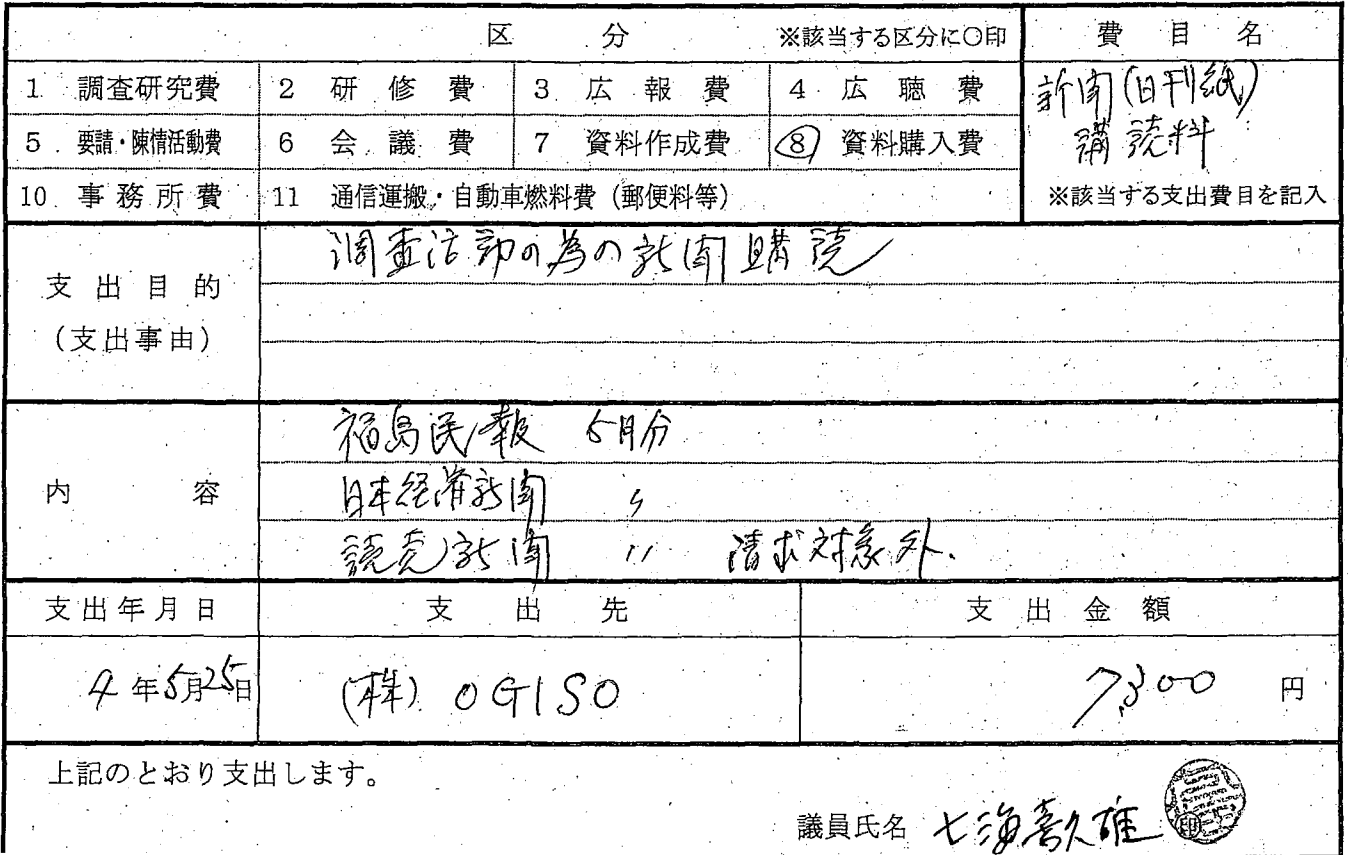 区 分 ※該当する区分に〇印 費 目 名
1 調査研究費 2 研 修 費 3 広 報 費 4 広 聴 費 新聞(日刊紙)
5 要請・陳情活動費 6 会 議 費 7 資料作成費 8 資料購入費 購読料
10 事務所費 11 通信運搬・自動車燃料費(郵便料等) ※該当する支出費目を記入
支出目的 調査活動の為の新聞購読
(支出事由)
福島民報 5月分
内 容 日本経済新聞 〃
読売新聞 〃 請求対象外.
支出年月日 支 出 先 支 出 金 額
4年5月25日 (株) OGISO 7,300 円
上記のとおり支出します。
議員氏名 七海喜久雄 印